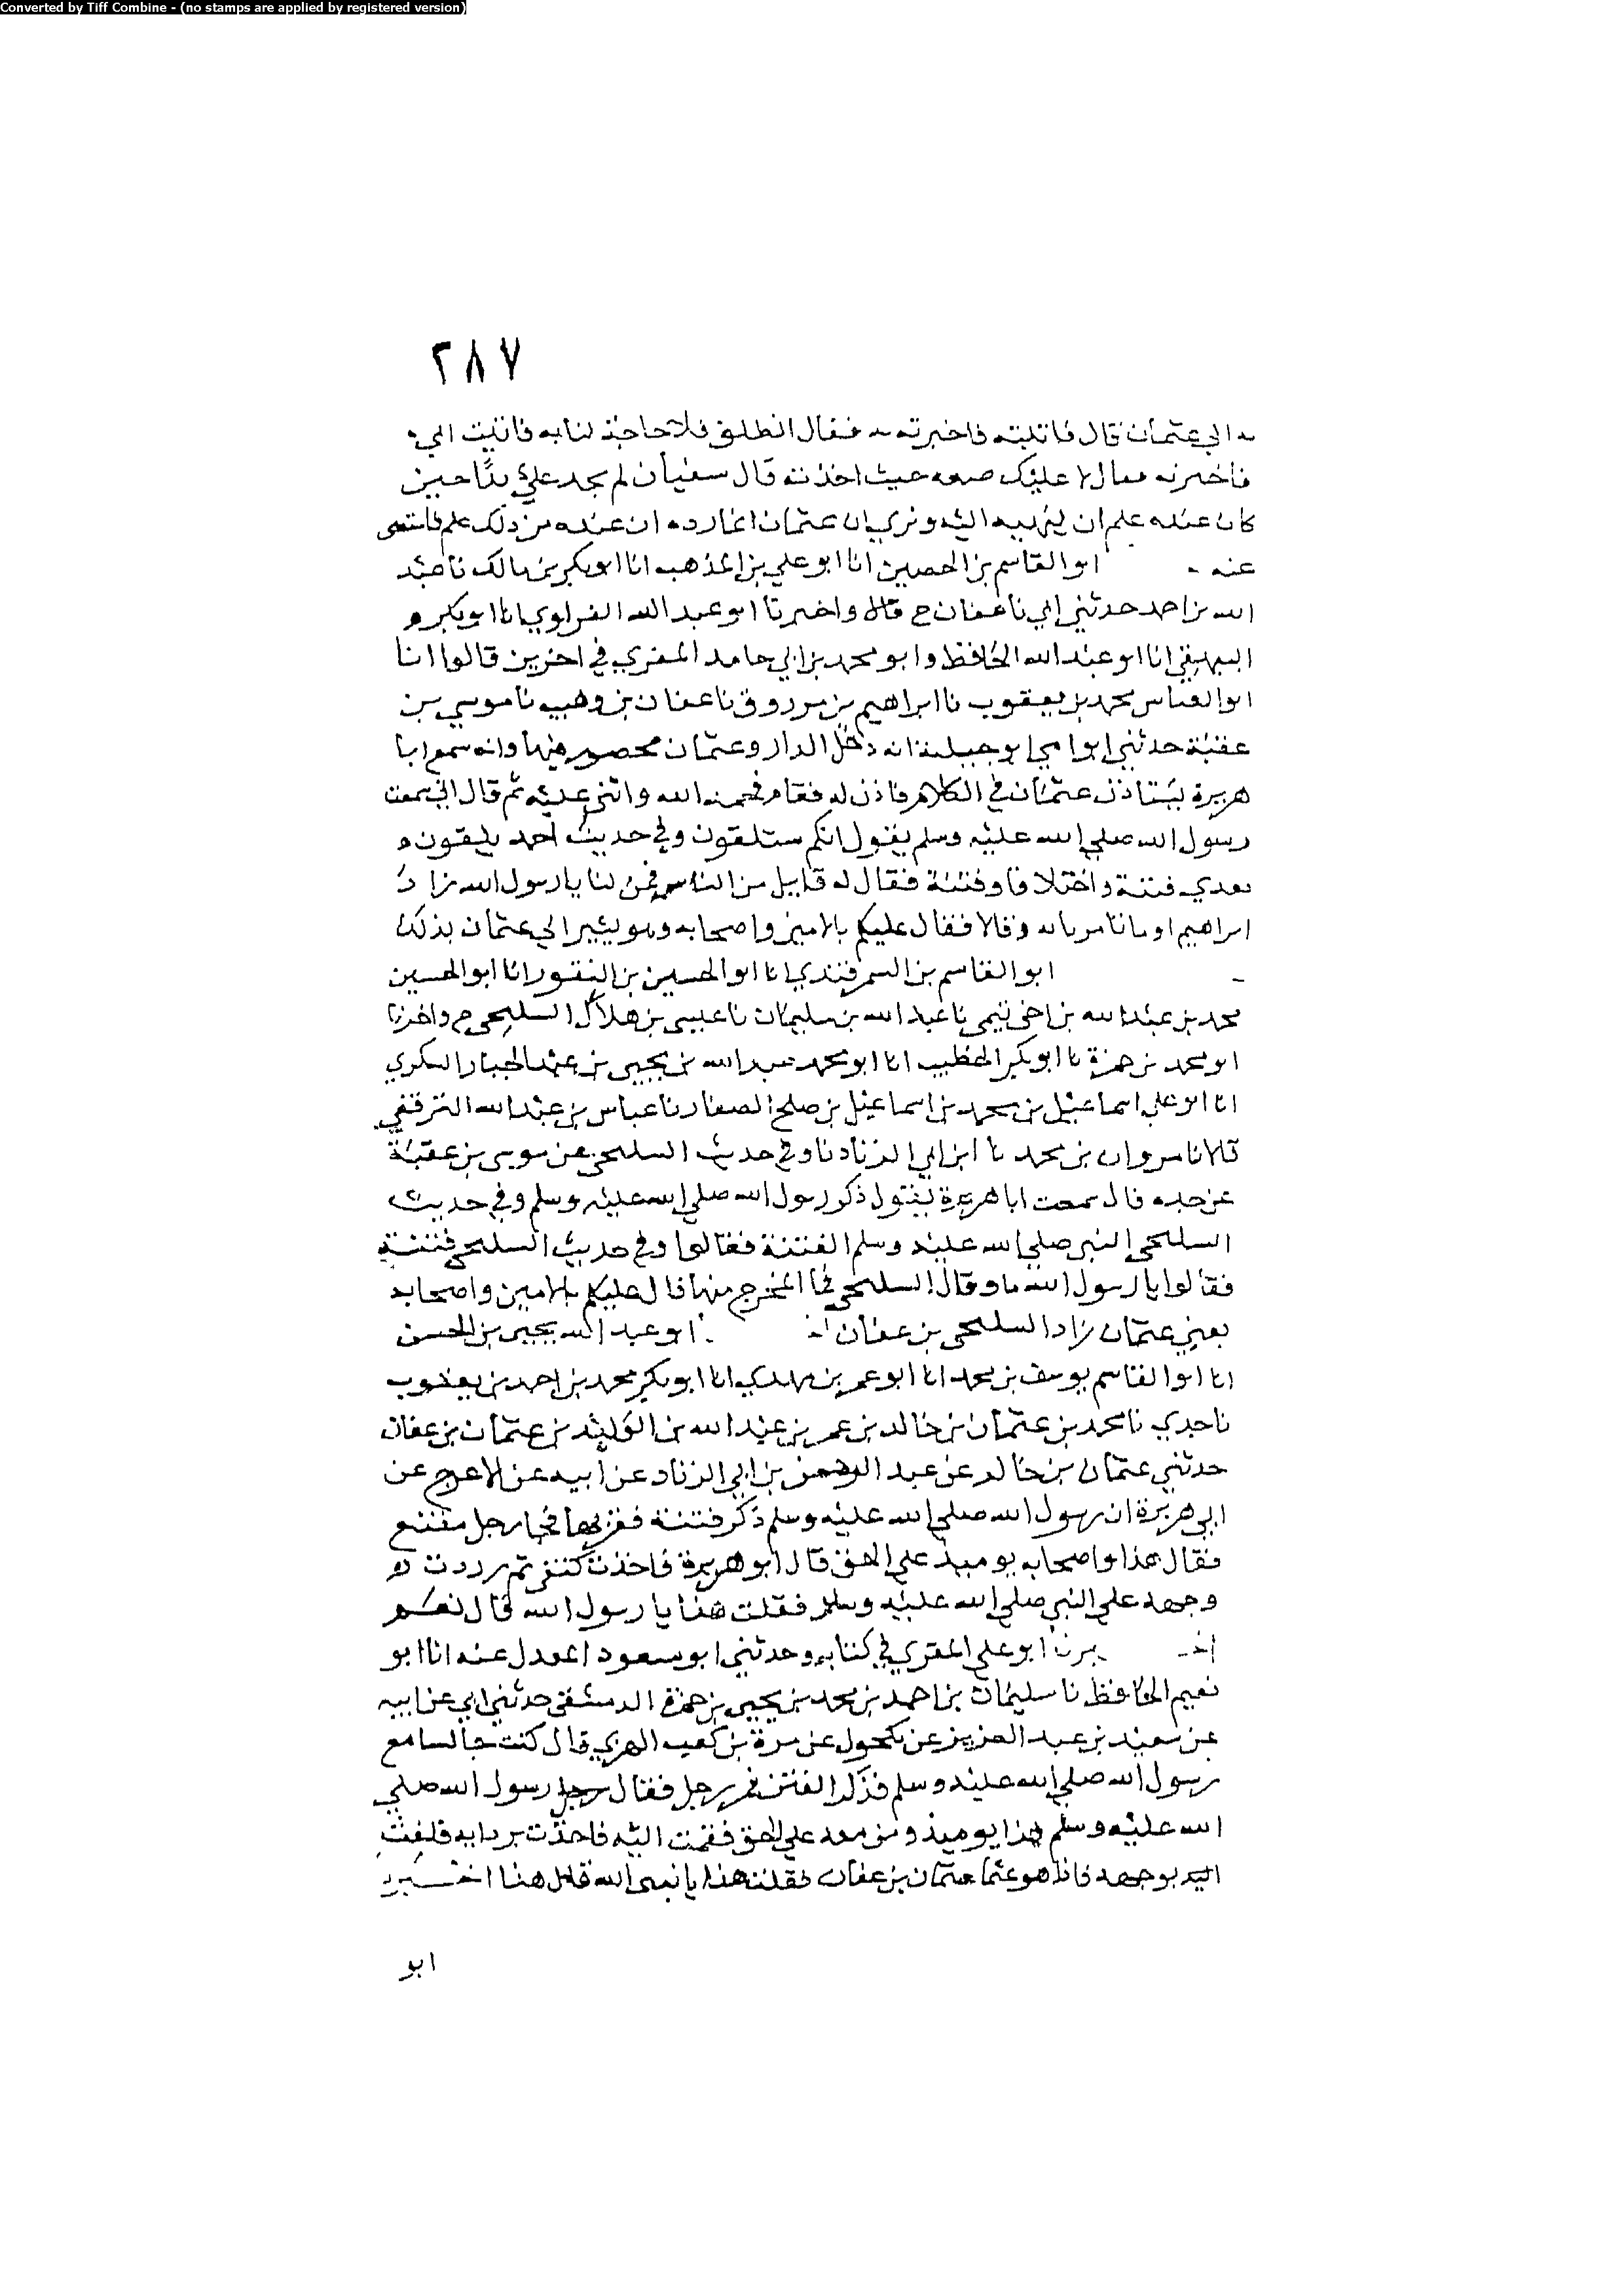 Converted by Tiff Combine - (no stamps are applied by registered version)
٢٨٧
به الى عثمان قال فاتيته فاخبرته به فقال انطلق فلا حاجة لنا به فاتيت الى
فاخبرته فقال لا عليك ضعه حيث اخذته قال سفيان لم يجد علي بدا حين
كان عنده علم ان ينهيه اليه ونرى ان عثمان انما رده ان عنده من ذلك علم فاستغنى
عنه ابو القاسم بن الحصين انا ابو علي بن المذهب انا ابو بكر بن مالك نا عبد
الله بن احمد حدثني ابي نا عفان ح قال واخبرنا ابو عبد الله الفراوي انا ابو بكر
البيهقي انا ابو عبد الله الحافظ وابو محمد بن ابي حامد المقري في اخرين قالوا انا
ابو العباس محمد بن يعقوب نا ابراهيم بن مرزوق نا عفان بن وهيب نا موسى بن
عقبة حدثني ابو امي ابو حبيبة انه دخل الدار وعثمان محصور فيها وانه سمع ابا
هريرة يستاذن عثمان في الكلام فاذن له فقام فحمد الله واثنى عليه ثم قال اني سمعت
رسول الله صلى الله عليه وسلم يقول انكم ستلقون وفي حديث احمد يلقون
بعدي فتنة واختلافا وفتنة فقال له قايل من الناس فمن لنا يا رسول الله زاد
ابراهيم او ما تامرنا به وقالا فقال عليكم بالامين واصحابه وهو يشير الى عثمان بذلك
ابو القاسم بن السمرقندي انا ابو الحسين بن النقور انا ابو الحسين
محمد بن عبد الله بن اخي ميمي نا عبد الله بن سليمان نا عيسى بن هلال السليحي ح واخبرنا
ابو محمد بن حمزة نا ابو بكر الخطيب انا ابو محمد عبد الله بن يحيى بن عبد الجبار السكري
انا ابو علي اسماعيل بن محمد بن اسماعيل بن صلح الصفار نا عباس بن عبد الله الترقفي
قالا نا مروان بن محمد نا ابن ابي الزناد نا وفي حديث السليحي عن موسى بن عقبة
عن جده قال سمعت ابا هريرة يقول ذكر رسول الله صلى الله عليه وسلم وفي حديث
السليحي النبي صلى الله عليه وسلم الفتنة فقالوا وفي حديث السليحي فتنة
فقالوا يا رسول الله ما وقال السليحي فما المخرج منها قال عليكم بالامين واصحابه
يعني عثمان زاد السليحي بن عفان اخـ ابو عبد الله يحيى بن الحسن
انا ابو القاسم يوسف بن محمد انا ابو عمر بن مهدي انا ابو بكر محمد بن احمد بن يعقوب
نا جدي نا محمد بن عثمان بن خالد بن عمر بن عبد الله بن الوليد بن عثمان بن عفان
حدثني عثمان بن خالد عن عبد الرحمن بن ابي الزناد عن ابيه عن الاعرج عن
ابي هريرة ان رسول الله صلى الله عليه وسلم ذكر فتنة فقربها فجا رجل مقنع
فقال هذا واصحابه يوميذ على الحق قال ابو هريرة فاخذت كتفي ثم رددت
وجهه على النبي صلى الله عليه وسلم فقلت هذا يا رسول الله قال نعم
اخـ ـبرنا ابو علي المقري في كتابه وحدثني ابو مسعود المعدل عنه انا ابو
نعيم الحافظ نا سليمان بن احمد بن محمد بن يحيى بن حمزة الدمشقي حدثني ابي عن ابيه
عن سعيد بن عبد العزيز عن مكحول عن مرة بن كعب البهزي قال كنت جالسا مع
رسول الله صلى الله عليه وسلم فذكر الفتن فمر رجل فقال رجل رسول الله صلى
الله عليه وسلم هذا يوميذ ومن معه على الحق فقمت اليه فاخذت بردايه فلفت
اليه بوجهه فاذا هو عثما عثمان بن عفان فقلت هذا يا نبي الله قال هذا اخـ ـبرنا
ابو